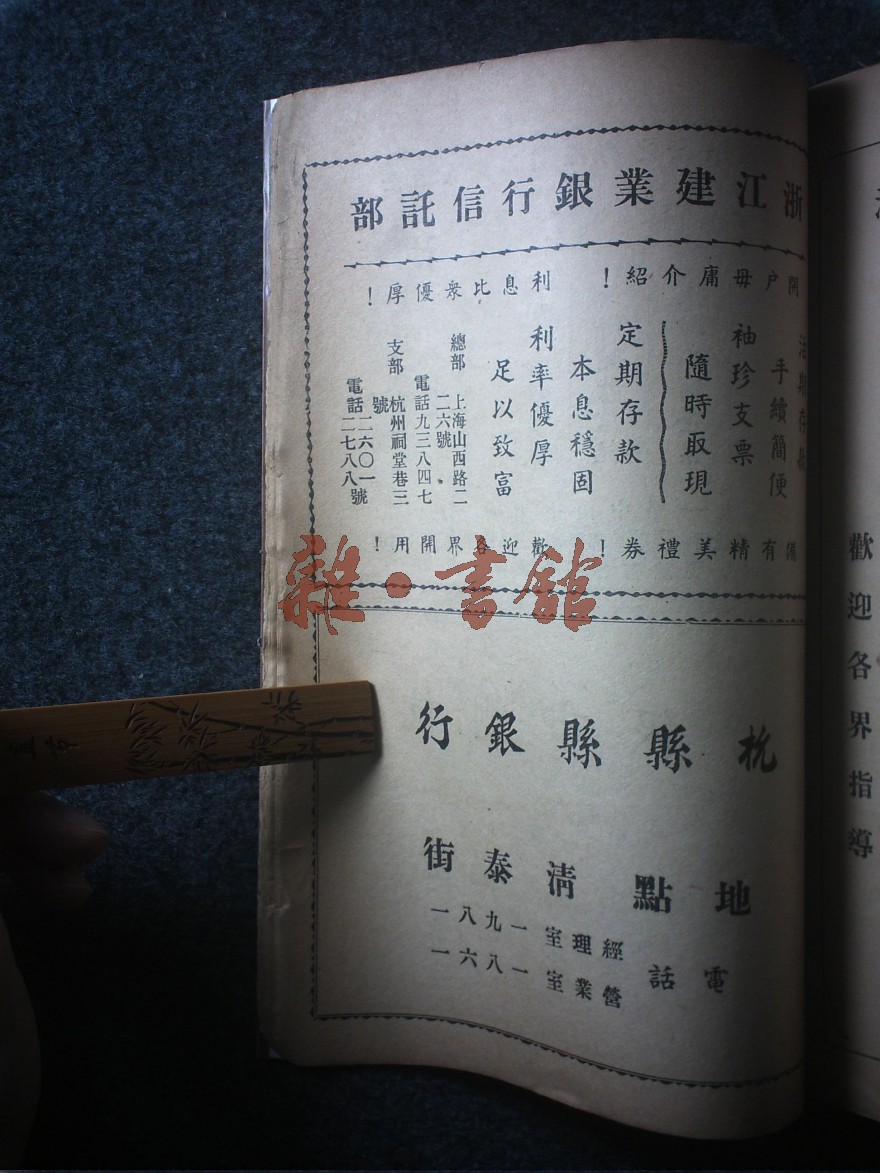 浙江建業銀行信託部
開户毋庸介紹！
利息比衆優厚！
活期存款
手續簡便
袖珍支票
隨時取現
定期存款
本息穩固
利率優厚
足以致富
總部 上海山西路二
二六號
電話九三八四七
支部 杭州祠堂巷三
號
電話二六〇一
二七八八號
備有精美禮券！
歡迎各界開用！
杭縣縣銀行
地點 清泰街
電話
經理室 一九八一
營業室 一八六一
歡迎各界指導
雜·書館